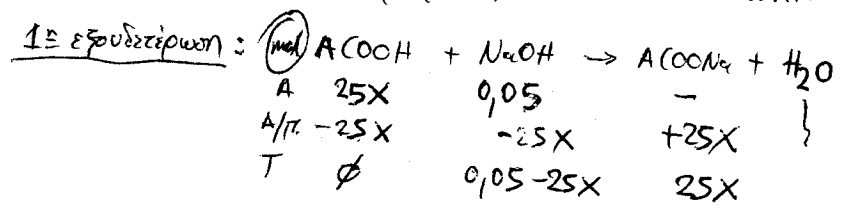 1η εξουδετέρωση : (mol) ACOOH + NaOH → ACOONa + H₂O
A 25x 0,05 -
A/π. -25x -25x +25x
T ∅ 0,05-25x 25x